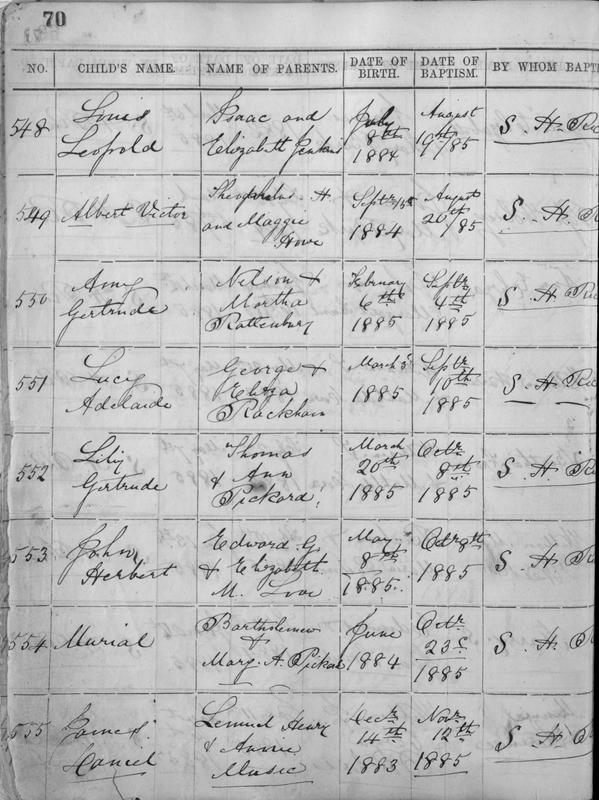 70
NO. CHILD'S NAME. NAME OF PARENTS. DATE OF BIRTH. DATE OF BAPTISM. BY WHOM BAPTI
548 Louis Isaac and July August S. H. Ric
Leopold Elizabeth Jenkins 8th 19th/85
1884
549 Albert Victor H. Septr 15th August S. H. R
and Maggie 1884 20th/85
Howe
550 Amy Nelson & February Septr S. H. Ric
Gertrude Martha 6th 4th
Rattenbury 1885 1885
551 Lucy George & March 3d Septr S. H. Ric
Adelaide Eliza 1885 10th
Rackham 1885
552 Lily Thomas March Octr S. H. Ric
Gertrude & Ann 20th 8th
Pickard 1885 1885
553 John Edward G. May Octr 8th S. H. R
Herbert & Elizabeth 8th 1885
M. Love 1885
554 Murial Bartholemew June Octr S. H. R
& 1884 23d
Mary. A. Pickar 1885
555 James Lemuel Henry Decr Novr S. H. R
Daniel & Annie 14th 12th
Music 1883 1885